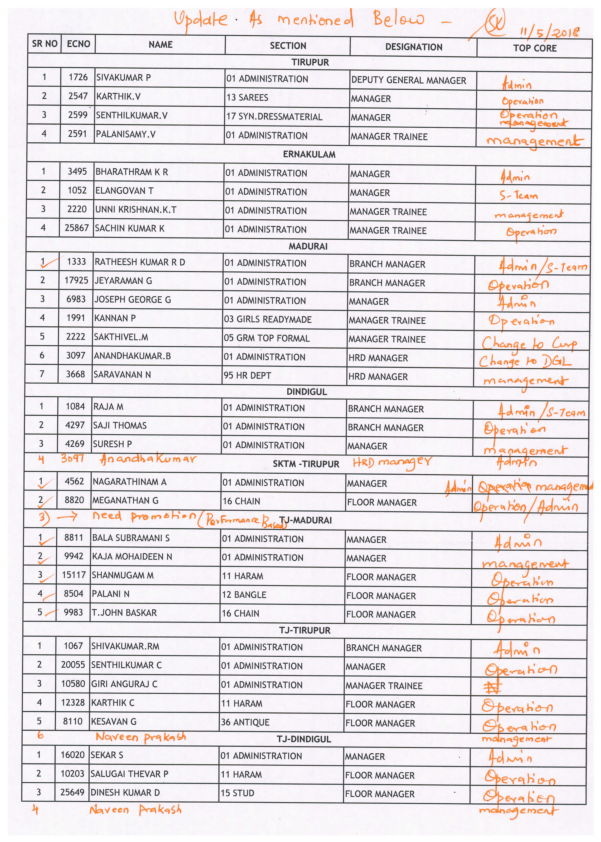 Update. As mentioned Below -
11/5/2018
SR NO ECNO NAME SECTION DESIGNATION TOP CORE
TIRUPUR
1 1726 SIVAKUMAR P 01 ADMINISTRATION DEPUTY GENERAL MANAGER Admin
2 2547 KARTHIK.V 13 SAREES MANAGER Operation
3 2599 SENTHILKUMAR.V 17 SYN.DRESSMATERIAL MANAGER Operation management
4 2591 PALANISAMY.V 01 ADMINISTRATION MANAGER TRAINEE management
ERNAKULAM
1 3495 BHARATHRAM K R 01 ADMINISTRATION MANAGER Admin
2 1052 ELANGOVAN T 01 ADMINISTRATION MANAGER S-Team
3 2220 UNNI KRISHNAN.K.T 01 ADMINISTRATION MANAGER TRAINEE management
4 25867 SACHIN KUMAR K 01 ADMINISTRATION MANAGER TRAINEE Operation
MADURAI
1 1333 RATHEESH KUMAR R D 01 ADMINISTRATION BRANCH MANAGER Admin/S-Team
2 17925 JEYARAMAN G 01 ADMINISTRATION BRANCH MANAGER Operation
3 6983 JOSEPH GEORGE G 01 ADMINISTRATION MANAGER Admin
4 1991 KANNAN P 03 GIRLS READYMADE MANAGER TRAINEE Operation
5 2222 SAKTHIVEL.M 05 GRM TOP FORMAL MANAGER TRAINEE Change to
6 3097 ANANDHAKUMAR.B 01 ADMINISTRATION HRD MANAGER Change to DGL
7 3668 SARAVANAN N 95 HR DEPT HRD MANAGER management
DINDIGUL
1 1084 RAJA M 01 ADMINISTRATION BRANCH MANAGER Admin/S-Team
2 4297 SAJI THOMAS 01 ADMINISTRATION BRANCH MANAGER Operation
3 4269 SURESH P 01 ADMINISTRATION MANAGER management
4 3097 Anandhakumar HRD manager Admin
SKTM -TIRUPUR
1 4562 NAGARATHINAM A 01 ADMINISTRATION MANAGER Admin Operation management
2 8820 MEGANATHAN G 16 CHAIN FLOOR MANAGER Operation/Admin
3) → need promotion (Performance Based)
TJ-MADURAI
1 8811 BALA SUBRAMANI S 01 ADMINISTRATION MANAGER Admin
2 9942 KAJA MOHAIDEEN N 01 ADMINISTRATION MANAGER management
3 15117 SHANMUGAM M 11 HARAM FLOOR MANAGER Operation
4 8504 PALANI N 12 BANGLE FLOOR MANAGER Operation
5 9983 T.JOHN BASKAR 16 CHAIN FLOOR MANAGER Operation
TJ-TIRUPUR
1 1067 SHIVAKUMAR.RM 01 ADMINISTRATION BRANCH MANAGER Admin
2 20055 SENTHILKUMAR C 01 ADMINISTRATION MANAGER Operation
3 10580 GIRI ANGURAJ C 01 ADMINISTRATION MANAGER TRAINEE
4 12328 KARTHIK C 11 HARAM FLOOR MANAGER Operation
5 8110 KESAVAN G 36 ANTIQUE FLOOR MANAGER Operation
6 Naveen prakash management
TJ-DINDIGUL
1 16020 SEKAR S 01 ADMINISTRATION MANAGER Admin
2 10203 SALUGAI THEVAR P 11 HARAM FLOOR MANAGER Operation
3 25649 DINESH KUMAR D 15 STUD FLOOR MANAGER Operation
4 Naveen Prakash management